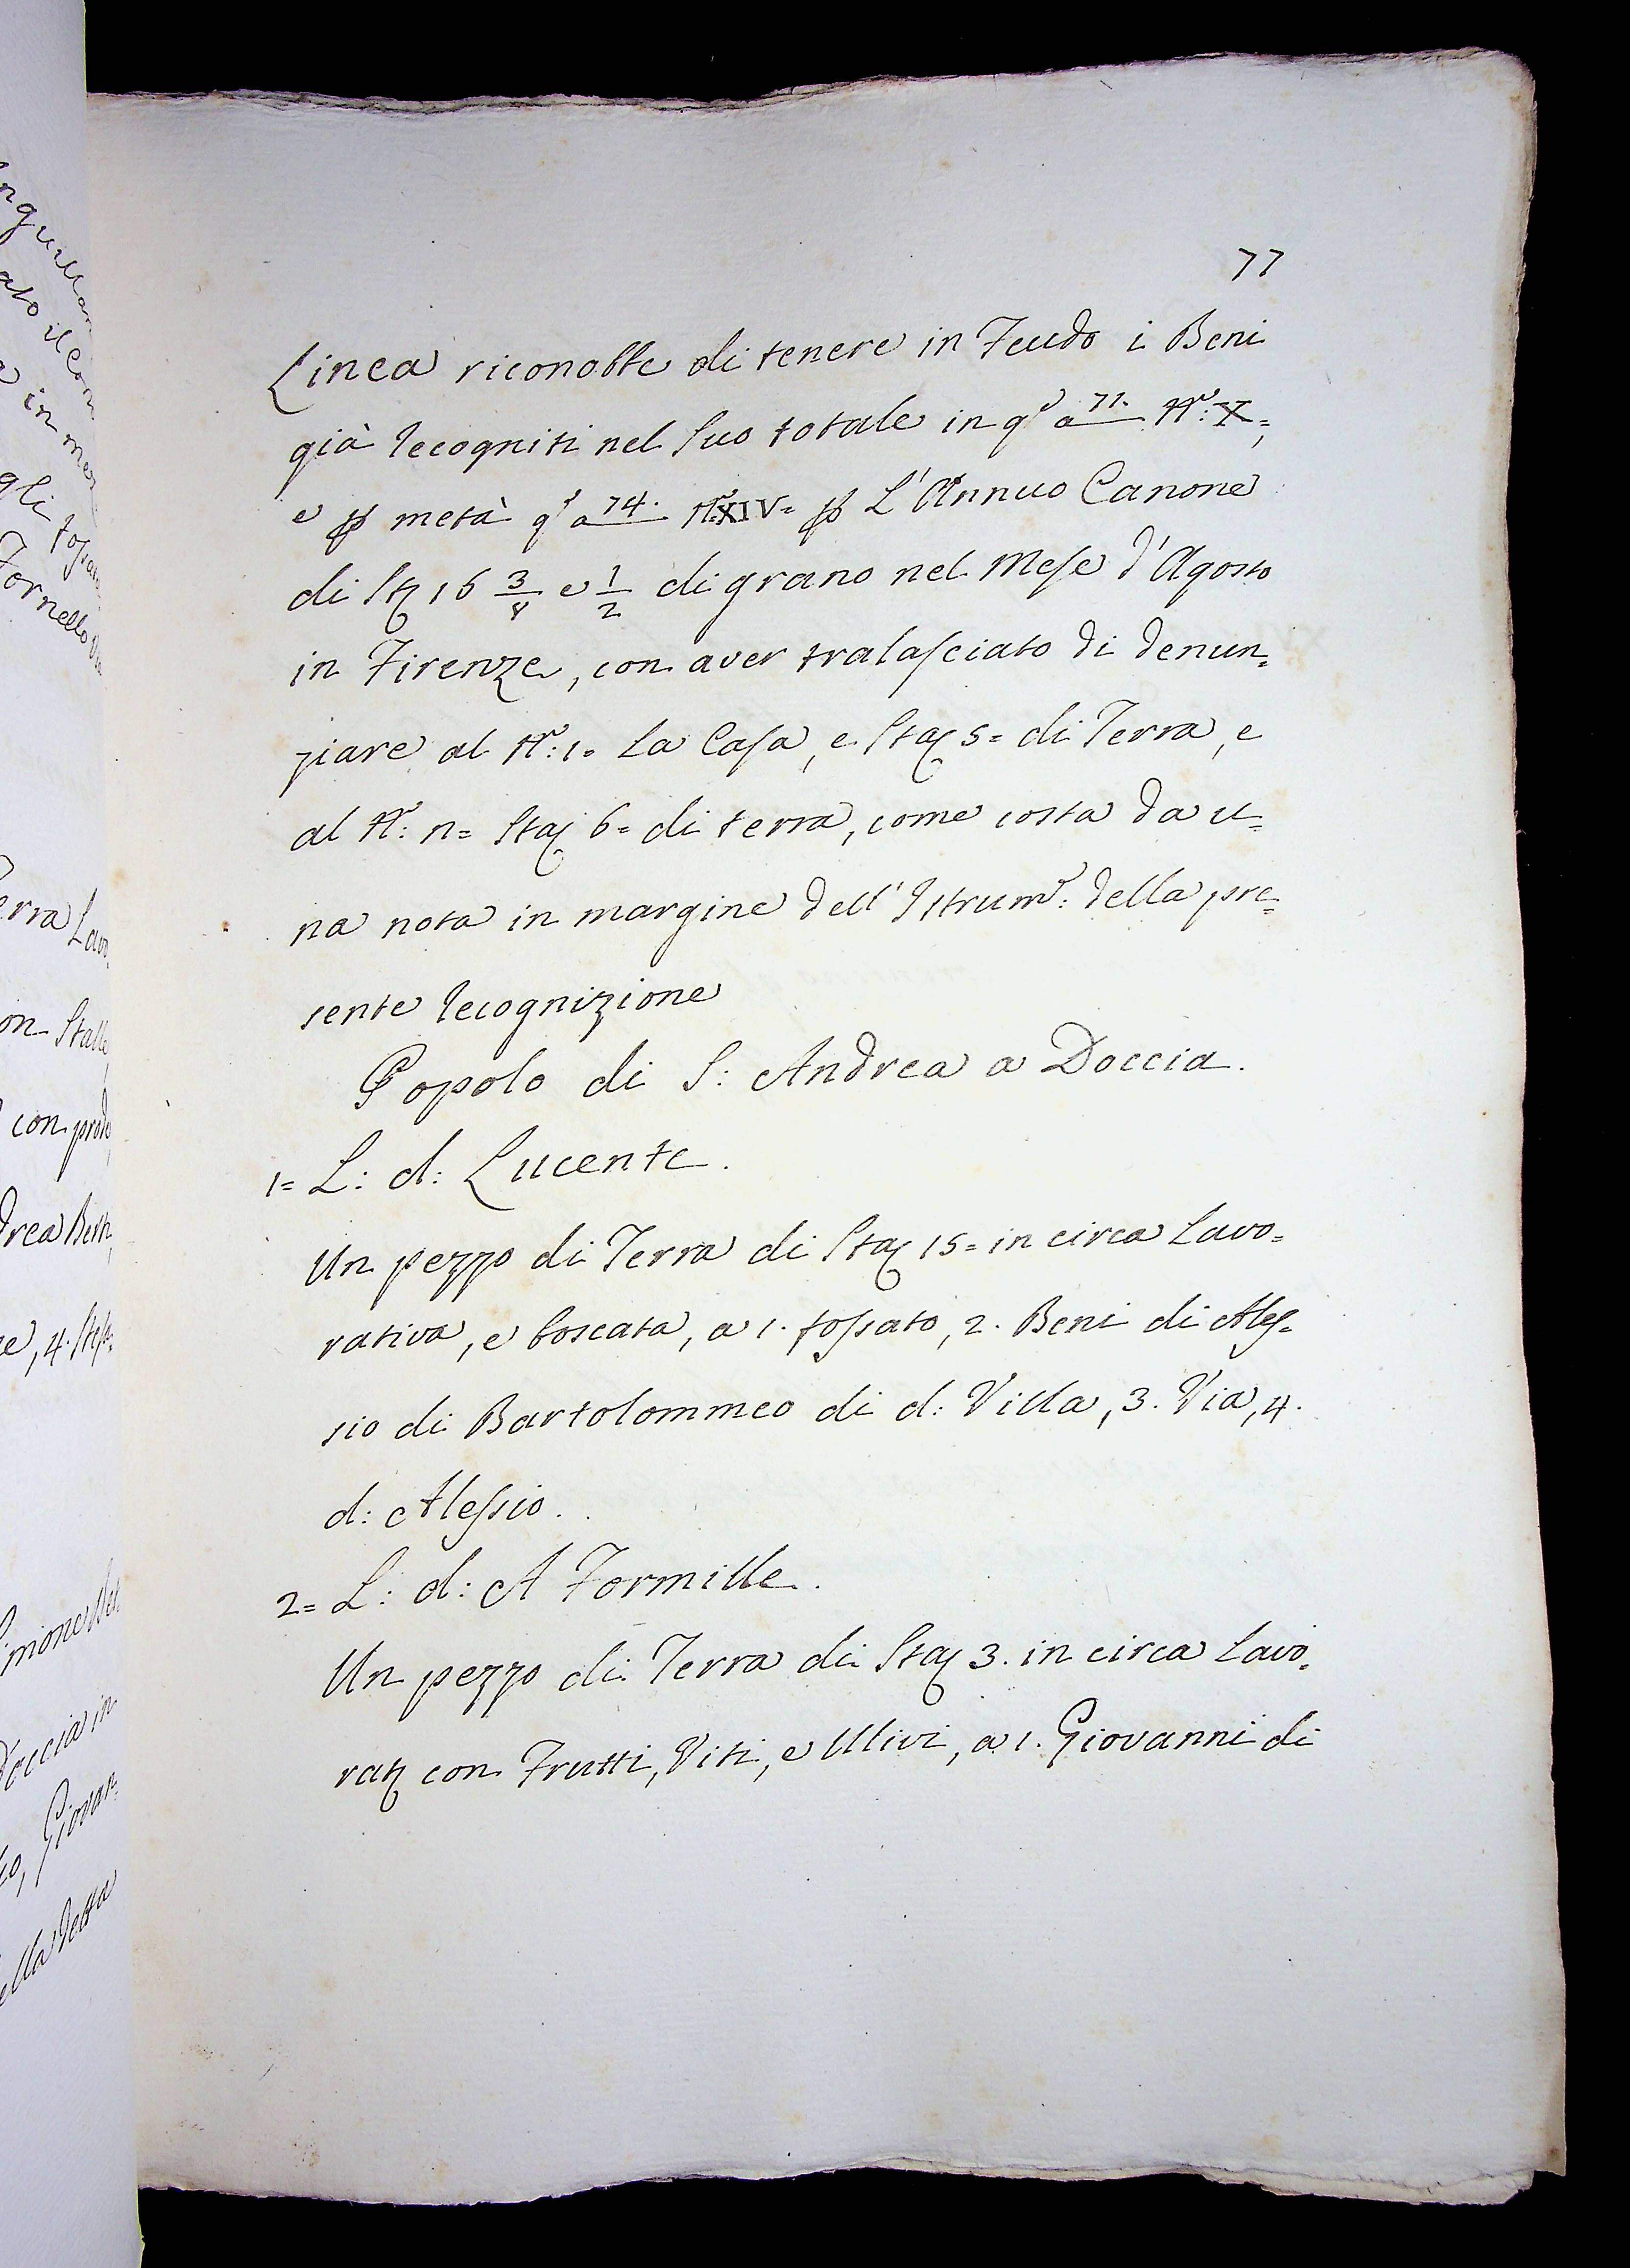 77
Linea riconobbe di tenere in Feudo i Beni
già Recogniti nel suo totale in q.º a 71. N.º: X=,
e p metà q.º a 74. N.º XIV= p L'Annuo Canone
di Sta 16 3/8 e 1/2 di grano nel Mese d'Agosto
in Firenze, con aver tralasciato di denun=
ziare al N.º: 1= La Casa, e Sta 5= di Terra, e
al N.º: 11= Sta 6= di terra, come costa da u=
na nota in margine dell'Istrum.º: della pre=
sente Recognizione
Popolo di S: Andrea a Doccia.
1= L: d: Lucente.
Un pezzo di Terra di Sta 15= in circa Lavo=
rativa, e boscata, a 1. fossato, 2. Beni di Ales=
sio di Bartolommeo di d: Villa, 3. Via, 4.
d: Alessio.
2= L: d: A Formille.
Un pezzo di Terra di Sta 3. in circa Lavo=
rat con Frutti, Viti, e Ulivi, a 1. Giovanni di